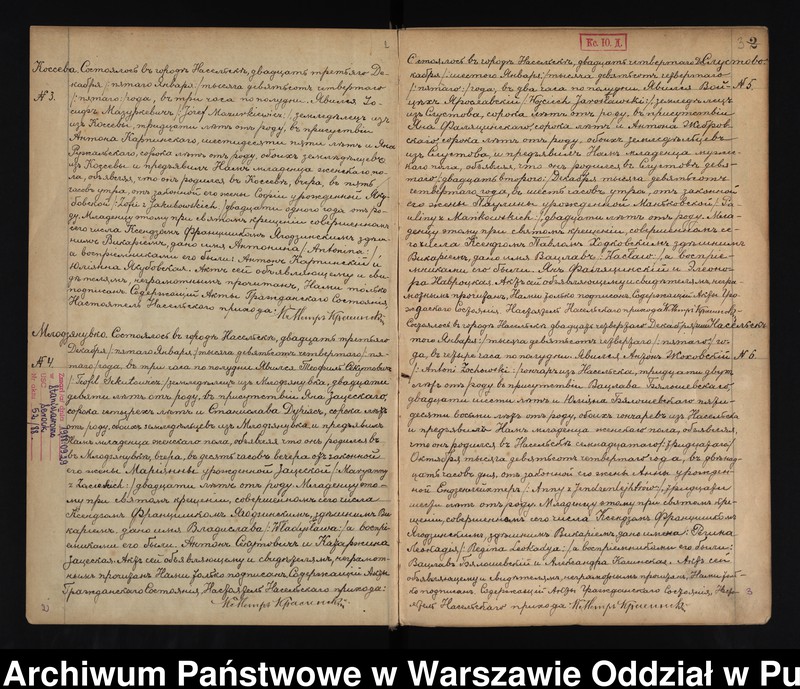 Коссева. Состоялось въ городѣ Насельскѣ, двадцать третьяго Де-
№ 3. кабря /: пятаго Января :/ тысяча девятьсотъ четвертаго
/: пятаго :/ года, въ три часа по полудни. Явился Іо-
сифъ Мазуркевичъ /: Józef Mazurkiewicz :/, земледѣлецъ изъ
изъ Коссевы, тридцати лѣтъ отъ роду, въ присутствіи
Антона Карпинскаго, шестидесяти пяти лѣтъ и Яна
сорока лѣтъ отъ роду, обоихъ земледѣльцевъ
изъ Коссевы и предъявилъ Намъ младенца женскаго по-
ла, объявляя, что онъ родился въ Коссевѣ, вчера, въ пять
часовъ утра, отъ законной его жены Софіи урожденной Яку-
бовской /: Zofii z Jakubowskich :/ двадцати одного года отъ ро-
ду. Младенцу этому при святомъ крещеніи совершенномъ
сего числа Ксендзомъ Францишкомъ Ягодзинскимъ здѣш-
нимъ Викаріемъ, дано имя Антонина /: Antonina :/
а воспріемниками его были: Антонъ Карпинскій и
Юліянна Якубовская. Актъ сей объявляющему и сви-
дѣтелямъ, неграмотнымъ прочитанъ, Нами только
подписанъ. Содержащій Акты Гражданскаго Состоянія
Настоятель Насельскаго прихода: Кс Петръ Красинскій
Млодзяновко. Состоялось въ городѣ Насельскѣ, двадцать третьяго
№ 4. Декабря /: пятаго Января :/ тысяча девятьсотъ четвертаго /: пя-
таго :/ года, въ три часа по полудни. Явился Теофиль
/: Teofil :/ земледѣлецъ изъ Млодзянувка, двадцати
девяти лѣтъ отъ роду, въ присутствіи Яна Зацескаго,
сорока четырехъ лѣтъ и Станислава сорока лѣтъ
отъ роду, обоихъ земледѣльцевъ изъ Млодзянувка и предъявилъ
Намъ младенца женскаго пола, объявляя что онъ родился въ
въ Млодзянувкѣ, вчера, въ десять часовъ вечера отъ законной
его жены Маріанны урожденной Зацеской /: Maryanny
z Zacieskich :/ двадцати лѣтъ отъ роду. Младенцу это-
му при святомъ крещеніи, совершенномъ сего числа
Ксендзомъ Францишкомъ Ягодзинскимъ, здѣшнимъ Ви-
каріемъ, дано имя Владислава /: Władysława :/ а воспрі-
емниками его были: Антонъ и Катаржина
Зацеская. Актъ сей объявляющему и свидѣтелямъ, неграмот-
нымъ прочитанъ Нами только подписанъ. Содержащій Акты
Гражданскаго Состоянія, Настоятель Насельскаго прихода:
Кс Петръ Красинскій
2
Кс. Ю. Д.
3 2
Слустово
№ 5.
Состоялось въ городѣ Насельскѣ, двадцать четвертаго Де-
кабря /: шестого Января :/ тысяча девятьсотъ четвертаго
/: пятаго :/ года, въ два часа по полудни. Явился Вой-
цѣхъ Ярославскій /: Wojciech Jarosławski :/ земледѣлецъ
изъ Слустова, сорока лѣтъ отъ роду, въ присутствіи
Яна Фалящинскаго, сорока лѣтъ и Антона
скаго, сорока лѣтъ отъ роду, обоихъ земледѣльцевъ
изъ Слустова, и предъявилъ Намъ младенца муже-
скаго пола, объявляя что онъ родился въ Слустовѣ, девя-
таго /: двадцать второго :/ Декабря тысяча девятьсотъ
четвертаго года, въ шесть часовъ утра, отъ законной
его жены Паулины урожденной Маньковской /: Pa-
uliny z Mańkowskich :/ двадцати лѣтъ отъ роду. Мла-
денцу этому при святомъ крещеніи, совершенномъ се-
го числа Ксендзомъ Павломъ Ходковскимъ, здѣшнимъ
Викаріемъ, дано имя Вацлавъ /: Wacław :/, а воспріе-
мниками его были: Янъ Фалящинскій и Элеоно-
ра Навроцкая. Актъ сей объявляющему и свидѣтелямъ, негра-
мотнымъ прочитанъ, Нами только подписанъ. Содержащій Акты Гра-
жданскаго Состоянія, Настоятель Насельскаго прихода: Кс Петръ Красинскій
Насельскъ
№ 6.
Состоялось въ городѣ Насельскѣ двадцать четвертаго Декабря /: шес-
таго Января :/ тысяча девятьсотъ четвертаго /: пятаго :/ го-
да, въ четыре часа по полудни. Явился Антонъ Жоховскій
/: Antoni Żochowski :/ гончаръ изъ Насельска, тридцати двухъ
лѣтъ отъ роду въ присутствіи Вацлава Бялошевскаго
двадцати шести лѣтъ и Юліяна Бялошевскаго пяти-
десяти восьми лѣтъ отъ роду, обоихъ гончаревъ изъ Насельска
и предъявилъ Намъ младенца женскаго пола, объявляя,
что онъ родился въ Насельскѣ, семнадцатаго /: тридцатаго :/
Октября тысяча девятьсотъ четвертаго года, въ двѣнад-
цать часовъ дня, отъ законной его жены Анны урожден-
ной /: Anny z :/ тридцати
шести лѣтъ отъ роду. Младенцу этому при святомъ кре-
щеніи, совершенномъ сего числа Ксендзомъ Францишкомъ
Ягодзинскимъ, здѣшнимъ Викаріемъ дано имена: Регина
Леокадія /: Regina Leokadya :/ а воспріемниками его были:
Вацлавъ Бялошевскій и Александра Каминская. Актъ сей
объявляющему и свидѣтелямъ, неграмотнымъ прочитанъ, Нами толь-
ко подписанъ. Содержащій Акты Гражданскаго Состоянія, Насто-
ятель Насельскаго прихода: Кс Петръ Красинскій
3
Archiwum Państwowe w Warszawie Oddział w Pu